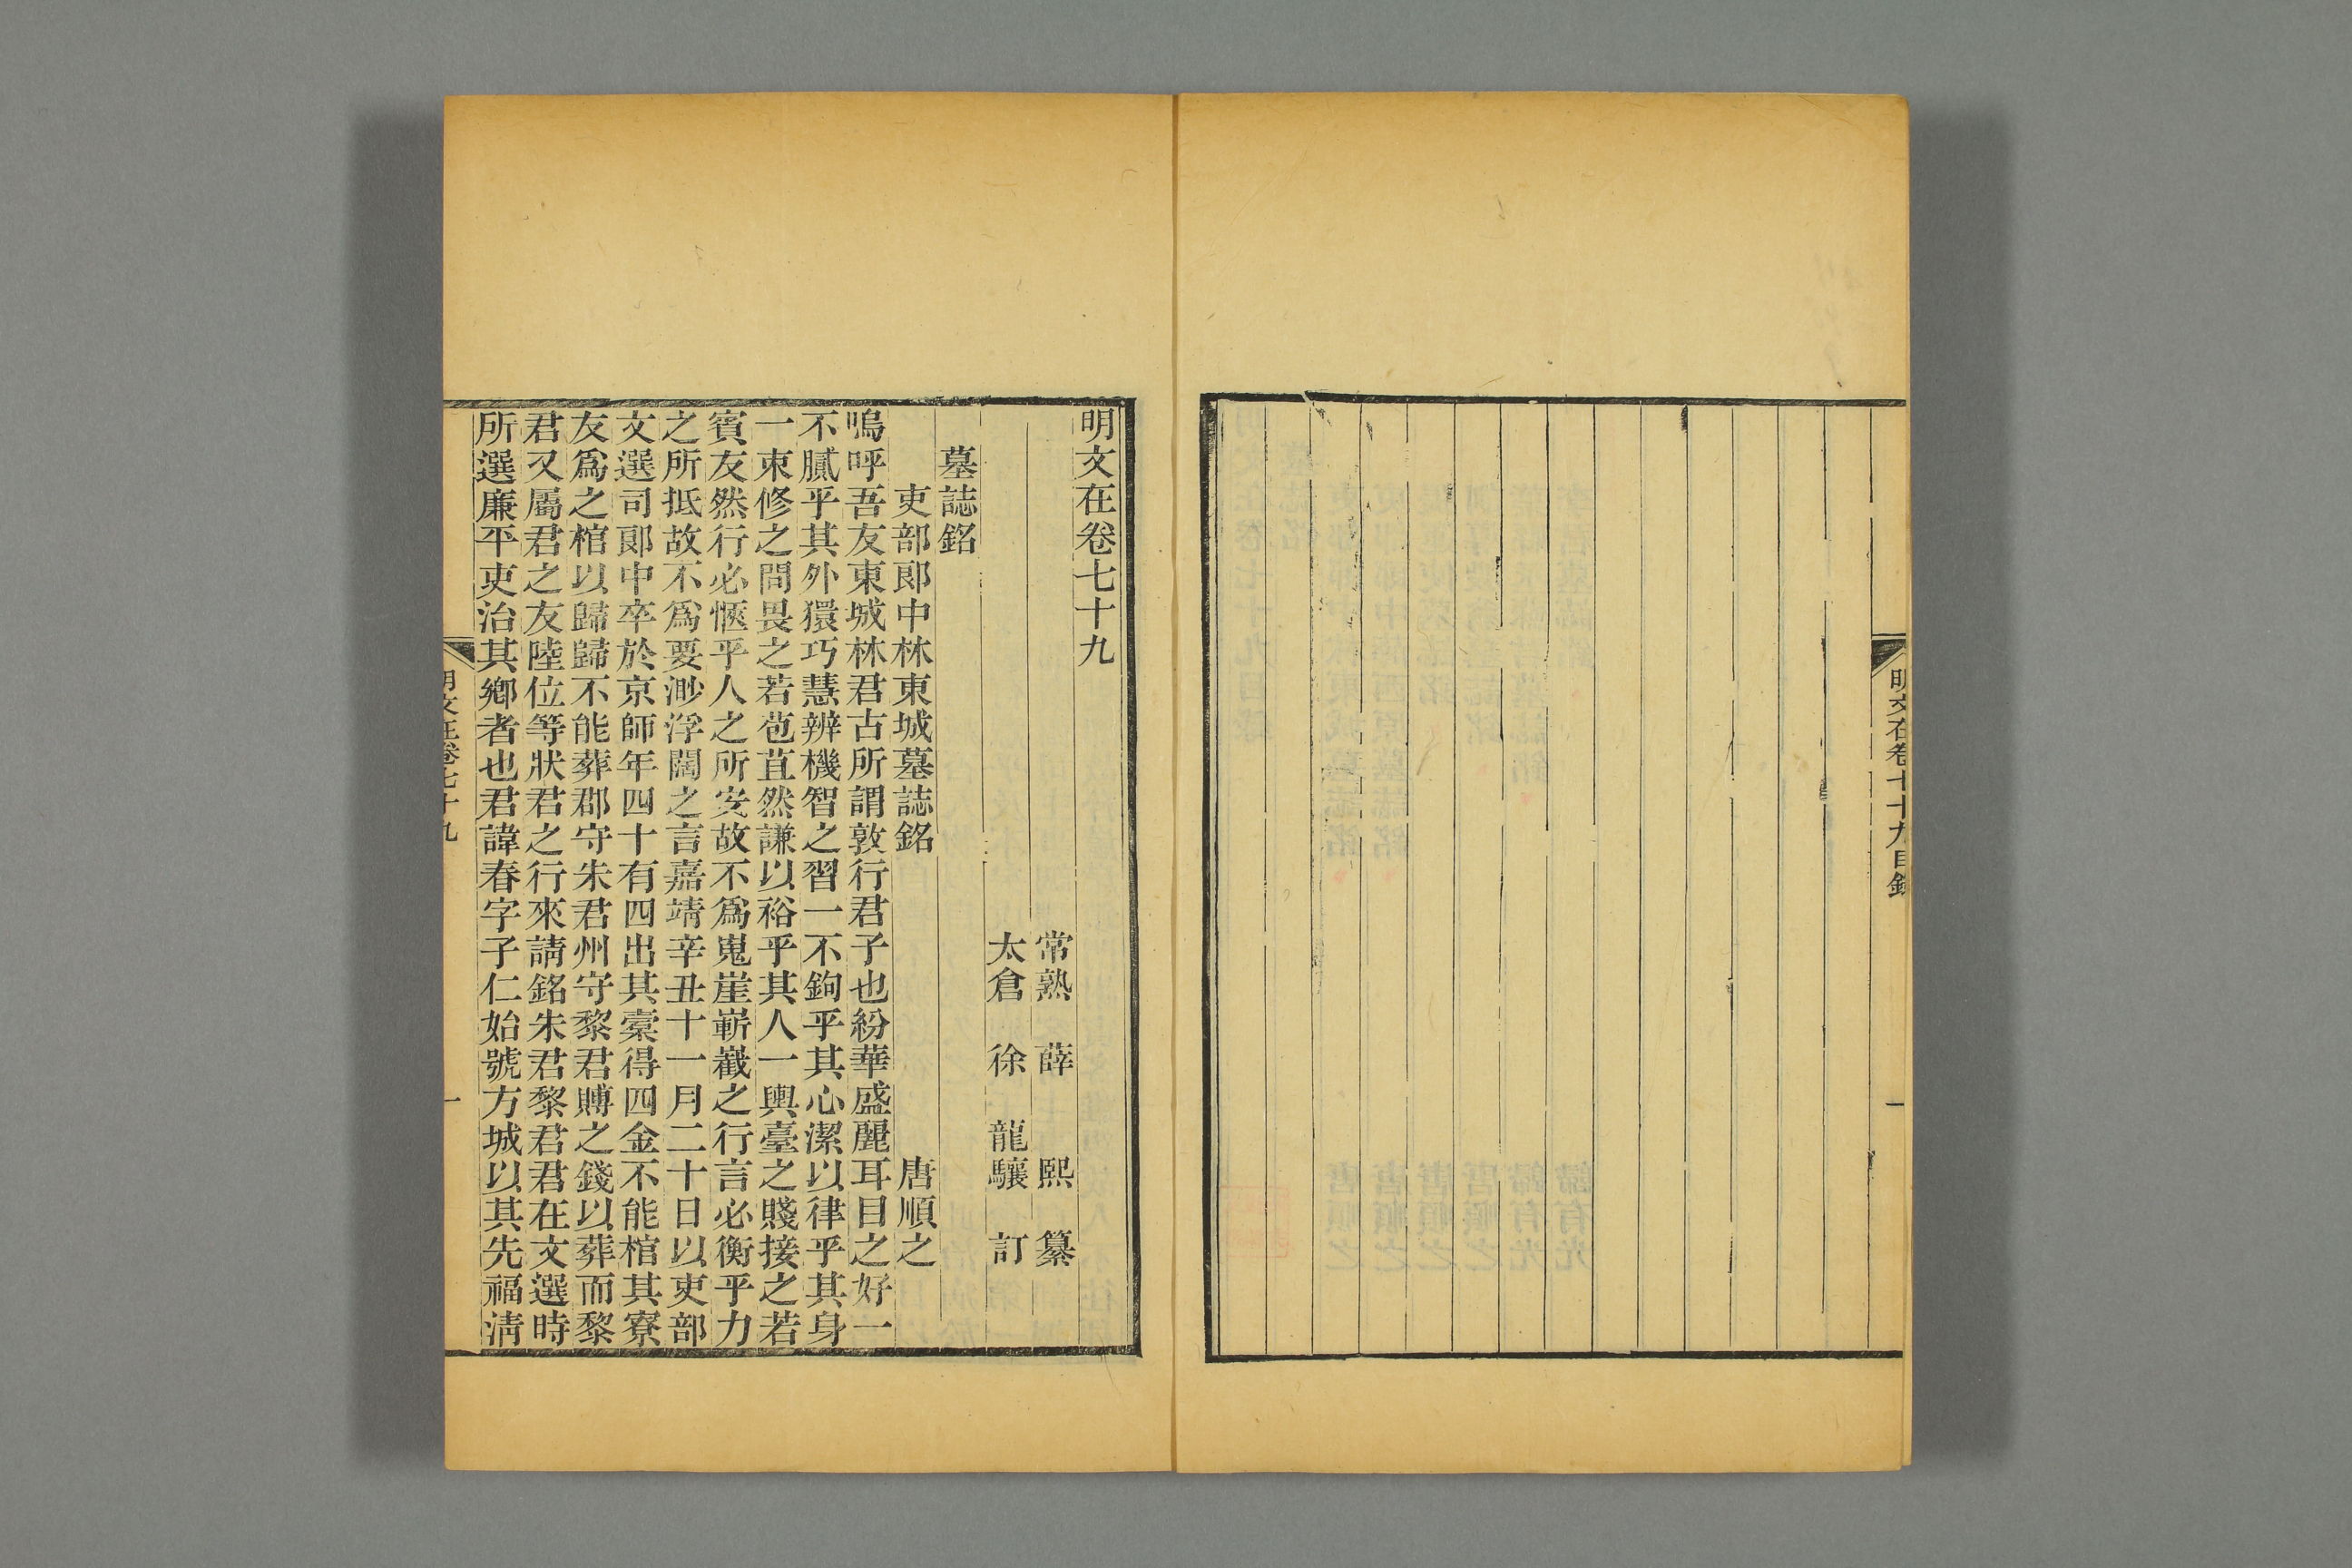 明文在卷七十九目錄
一
明文在卷七十九
常熟 薛 熙 纂
太倉 徐 龍驤 訂
墓誌銘
吏部郎中林東城墓誌銘 唐順之
嗚呼吾友東城林君古所謂敦行君子也紛華盛麗耳目之好一
不膩乎其外獧巧慧辨機智之習一不鉤乎其心潔以律乎其身
一束修之問畏之若苞苴然謙以裕乎其人一輿臺之賤接之若
賓友然行必愜乎人之所安故不爲嵬崖嶄巀之行言必衡乎力
之所抵故不爲要渺浮闊之言嘉靖辛丑十一月二十日以吏部
文選司郎中卒於京師年四十有四出其槖得四金不能棺其寮
友爲之棺以歸歸不能葬郡守朱君州守黎君賻之錢以葬而黎
君又屬君之友陸位等狀君之行來請銘朱君黎君君在文選時
所選廉平吏治其鄉者也君諱春字子仁始號方城以其先福淸
明文在卷七十九
一